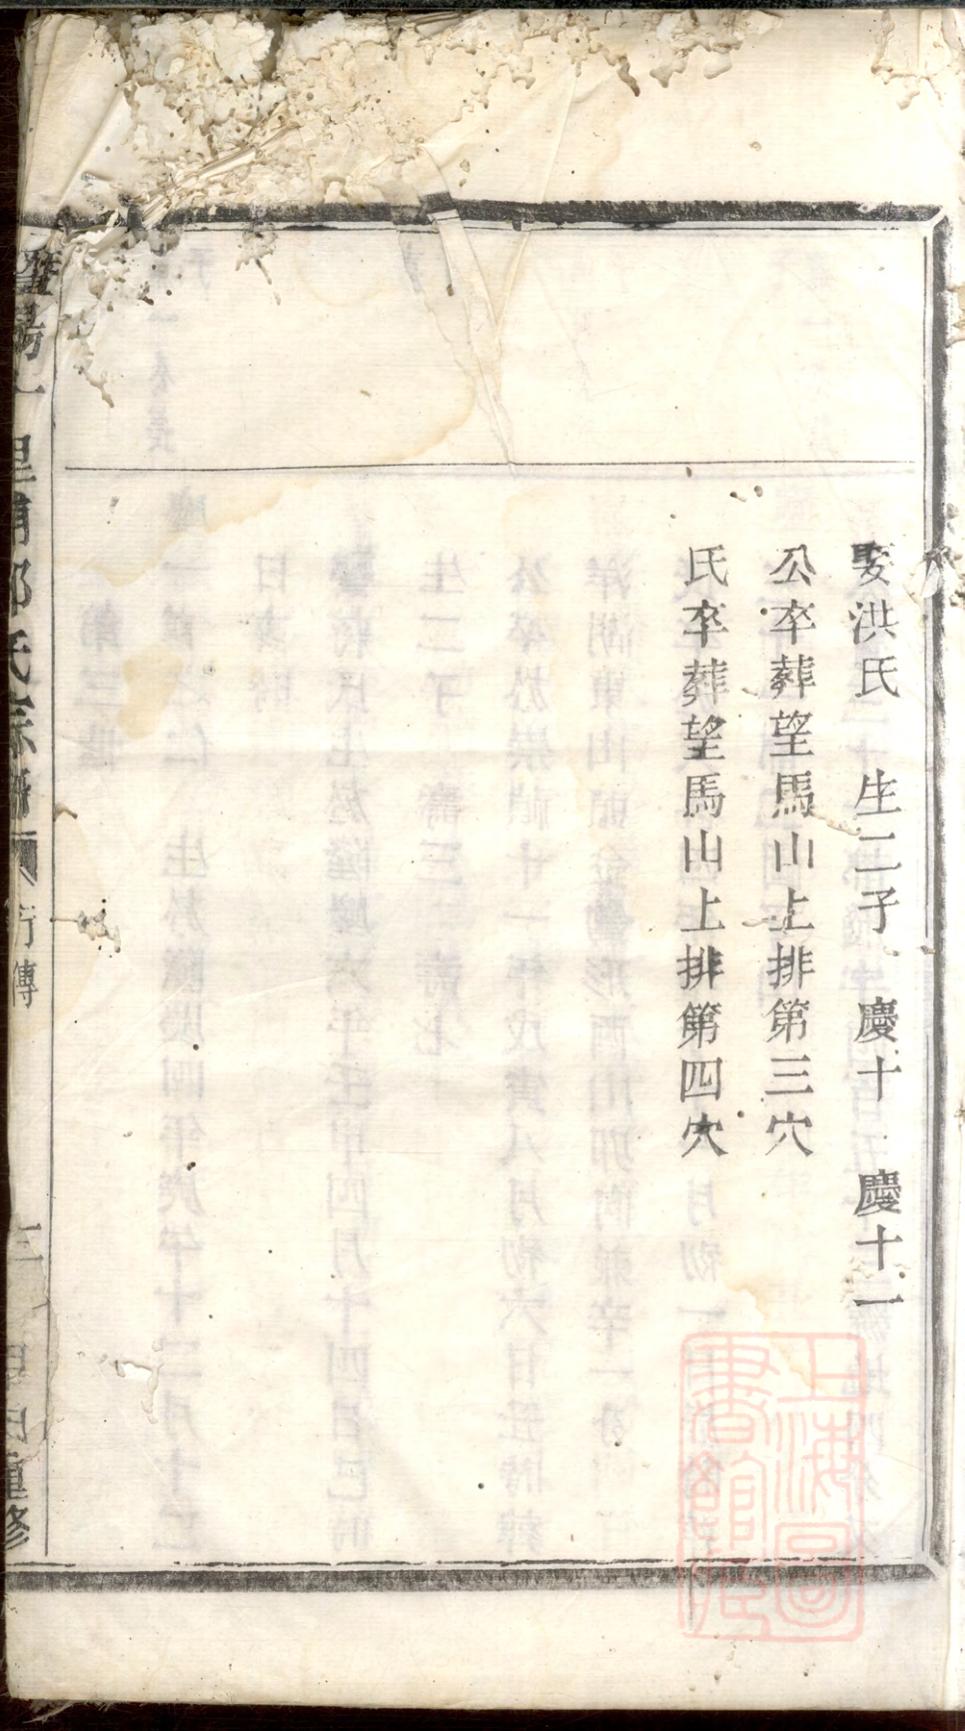 娶洪氏 生二子 慶十 慶十一
公卒葬望馬山上排第三穴
氏卒葬望馬山上排第四穴
暨陽 里 氏宗譜 行傳 三 重修
上海圖書館藏